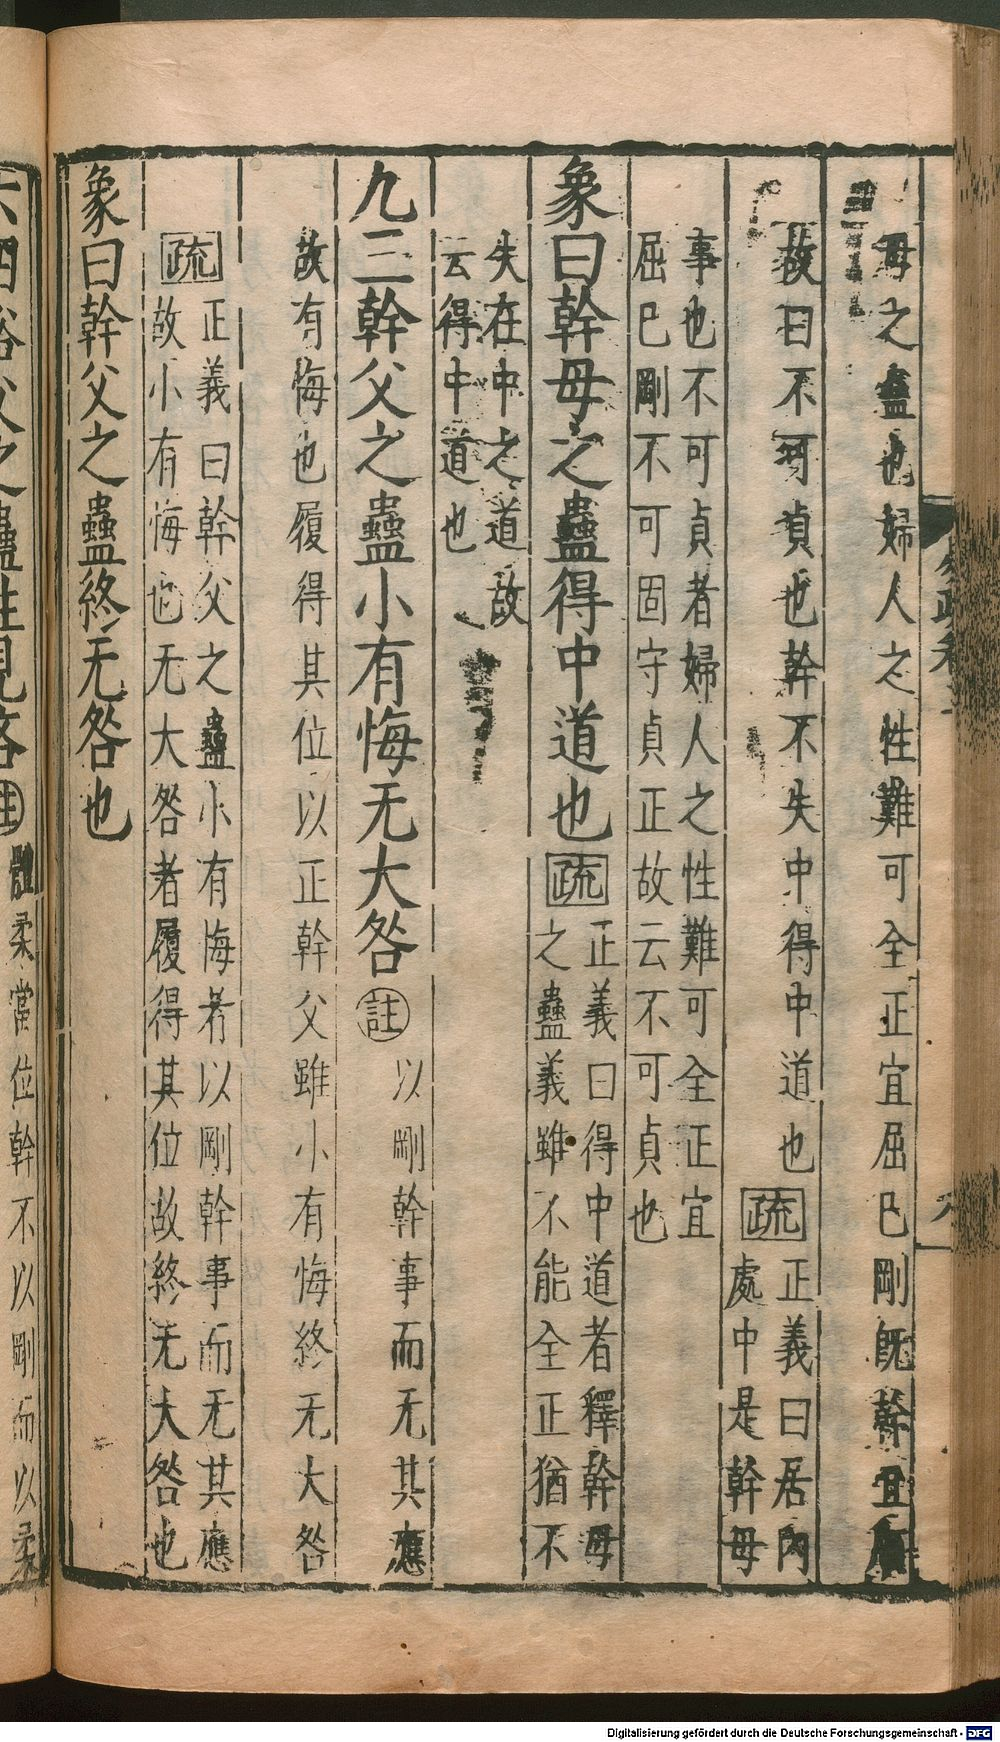 母之蠱也婦人之性難可全正宜屈已剛旣幹且順
故曰不可貞也幹不失中得中道也疏正義曰居內
處中是幹母
事也不可貞者婦人之性難可全正宜
屈已剛不可固守貞正故云不可貞也
象曰幹母之蠱得中道也疏正義曰得中道者釋幹母
之蠱義雖不能全正猶不
失在中之道故
云得中道也
九三幹父之蠱小有悔无大咎註以剛幹事而无其應
故有悔也履得其位以正幹父雖小有悔終无大咎
疏正義曰幹父之蠱小有悔者以剛幹事而无其應
故小有悔也无大咎者履得其位故終无大咎也
象曰幹父之蠱終无咎也
六四裕父之蠱往見吝註體柔當位幹不以剛而以柔
Digitalisierung gefördert durch die Deutsche Forschungsgemeinschaft - DFG